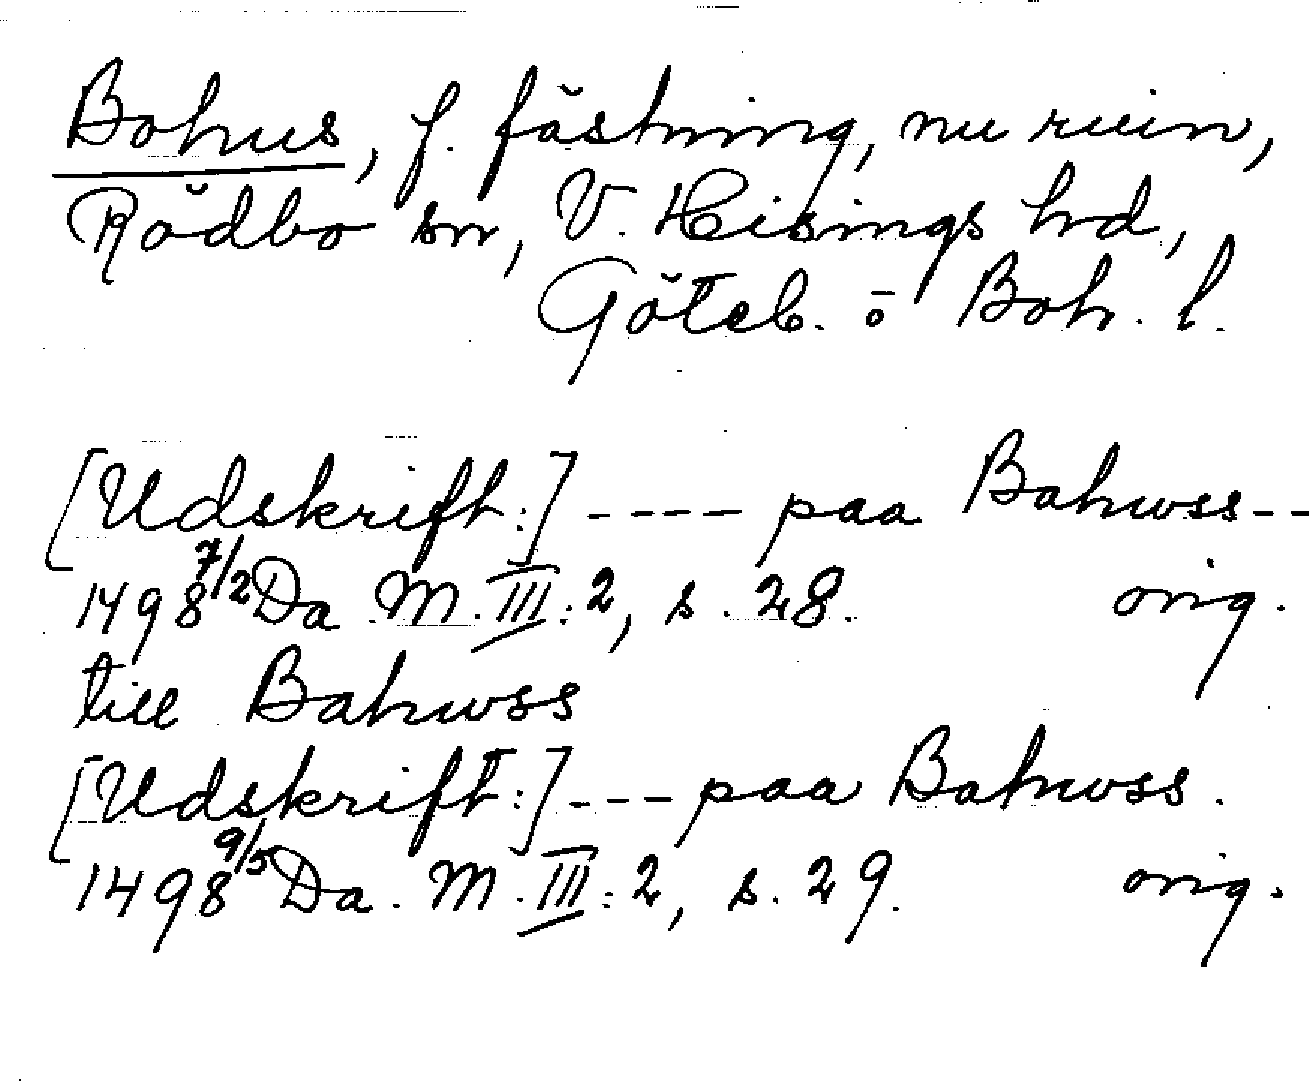 Bohus, f. fästning, nu ruin,
Rödbo sn, V. Hisings hd,
Göteb. o Boh. l.
[Udskrift:] ---- paa Bahwss--
1498 7/2 Da. M. III: 2, s. 28. orig.
till Bahwss
[Udskrift:] --- paa Bahwss.
1498 9/5 Da. M. III: 2, s. 29. orig.